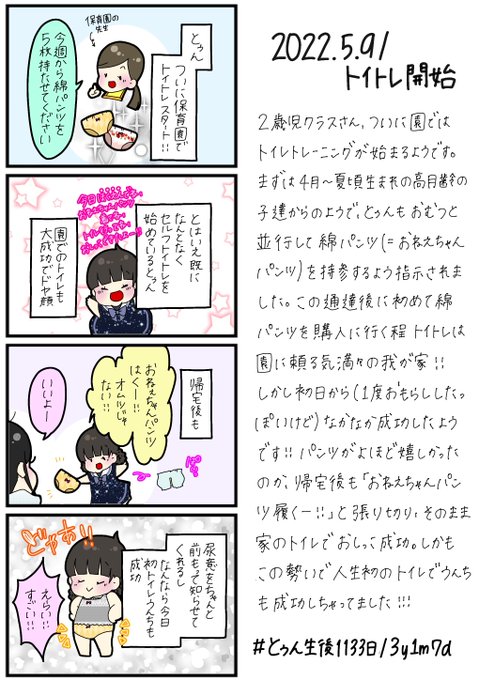 保育園の
先生
とぅん
ついに保育園で
トイトレスタート!!
今週から綿パンツを
5枚持たせてください
とはいえ既に
なんとなく
セルフトイトレを
始めているとぅん
園でのトイレも
大成功でドヤ顔
帰宅後も
おねえちゃんパンツ
はくー!!
オムツじゃ
ない!!
いいよー
尿意をちゃんと
前もって知らせて
くれるし
なんなら今日
初トイレうんちも
成功
どやぁ!!
えらい!!
すごい!!
2022.5.9/
トイトレ開始
2歳児クラスさん、ついに園では
トイレトレーニングが始まるようです。
まずは4月〜夏頃生まれの高月齢の
子達からのようで、とぅんもおむつと
並行して綿パンツ(=おねえちゃん
パンツ)を持参するよう指示されま
した。この通達後に初めて綿
パンツを購入に行く程トイトレは
園に頼る気満々の我が家!!
しかし初日から(1度おもらししたっ
ぽいけど)なかなか成功したよう
です!!パンツがよほど嬉しかった
のか、帰宅後も「おねえちゃんパン
ツ履くー!!」と張り切り、そのまま
家のトイレでおしっこ成功。しかも
この勢いで人生初のトイレでうんち
も成功しちゃってました!!!
#とぅん生後1133日/3y1m7d